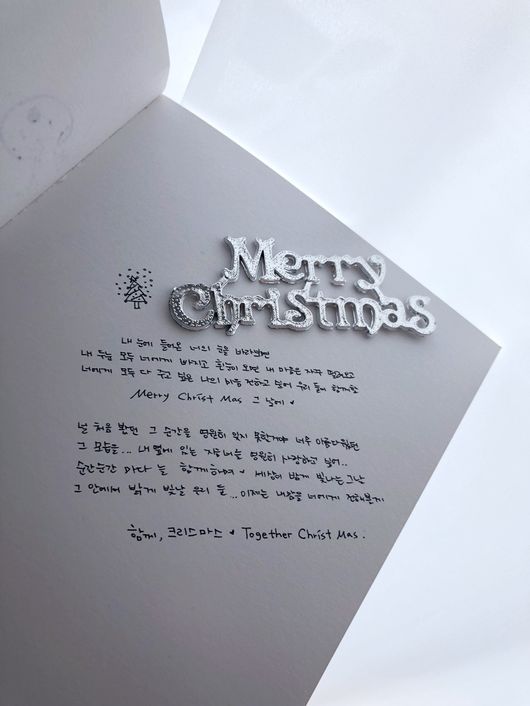 Merry
Christmas
내 눈에 들어온 너의 눈을 바라보면
내 두눈 모두 너에게 빠지고 흰눈이 오면 내 마음은 자꾸
너에게 모두 다 주고 싶은 나의 전하고 싶어 우리 둘이 함께할
Merry Christ Mas 그 날에
널 처음 봤던 그 순간을 영원히 잊지 못한거야 너무 아름다웠던
그 모습을... 내 옆에 있는 지금 너를 영원히 사랑하고 싶어..
순간순간 마다 늘 함께하며 세상이 밝게 빛나는 그날
그 안에서 밝게 빛날 우리 둘... 이제는 내맘을 너에게 전해본다
함께, 크리스마스 Together Christ Mas.